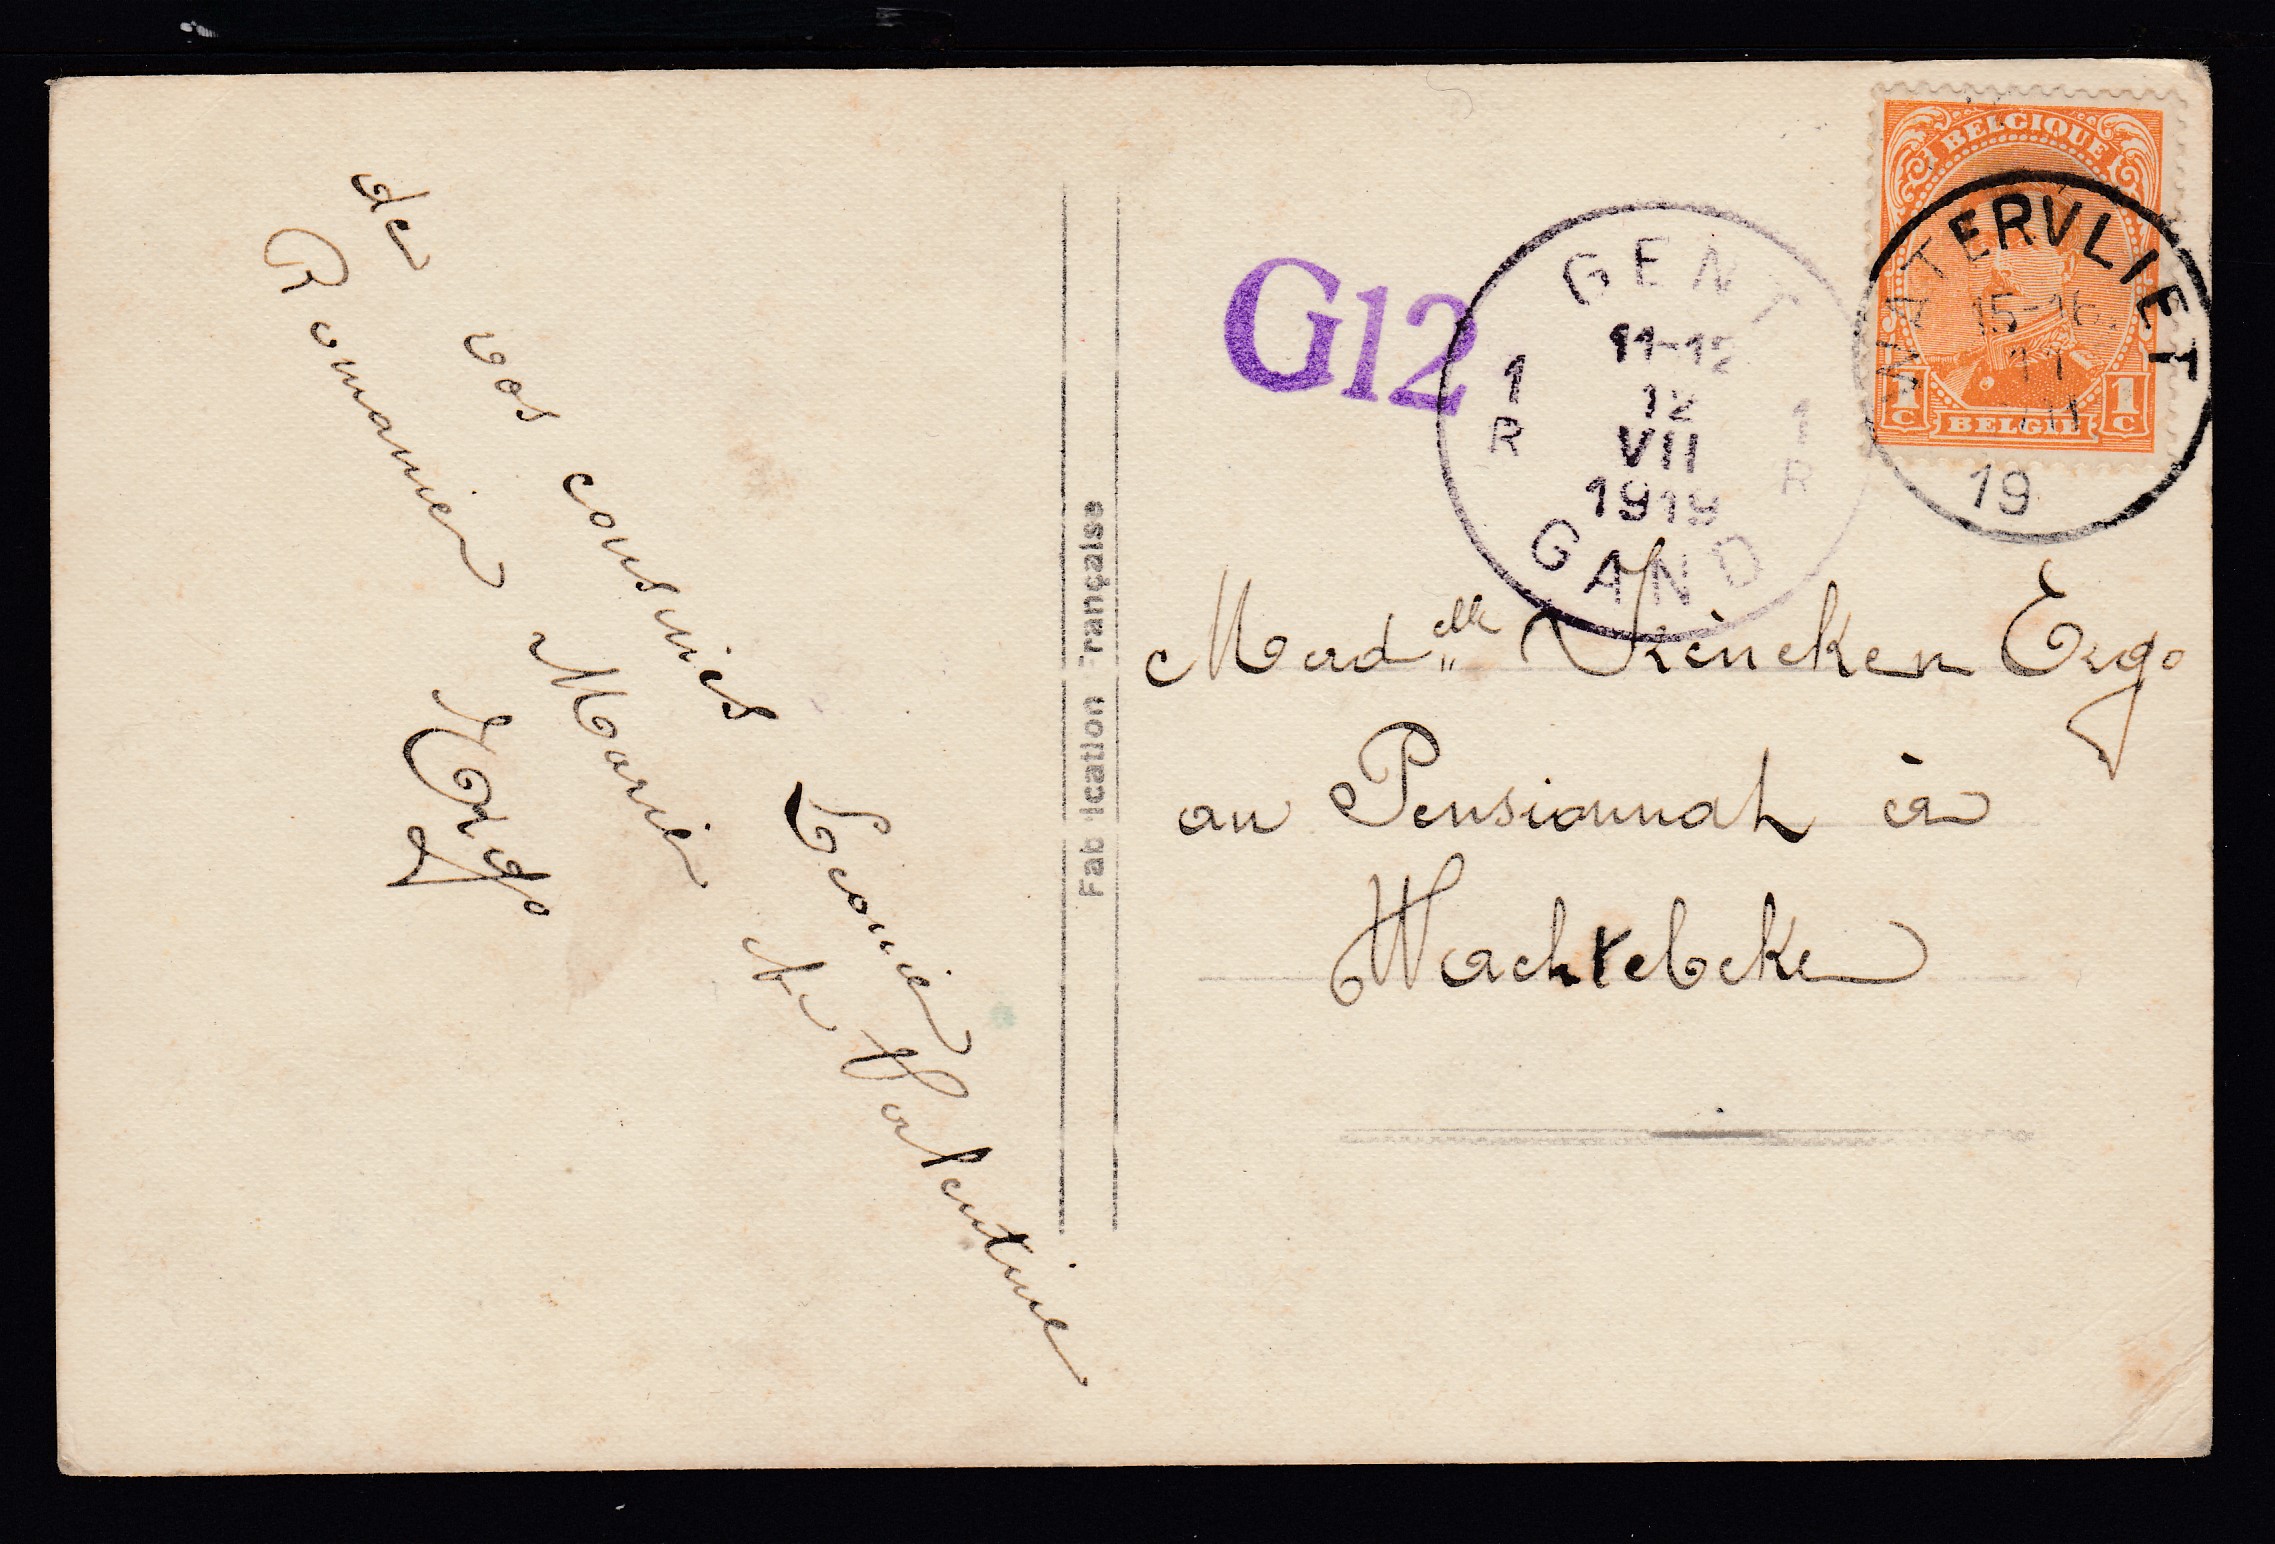 de vos cousines Leonie
Romanie Marie et Valentine
Ergo
Fabrication Française
G12
GENT
11-12
12
VII
1919
1 R
1 R
GAND
BELGIQUE
1 C
BELGIË
1 C
WATERVLIET
15-16
11
VII
19
Mad elle Ireneken Ergo
au Pensionnat à
Wachtebeke